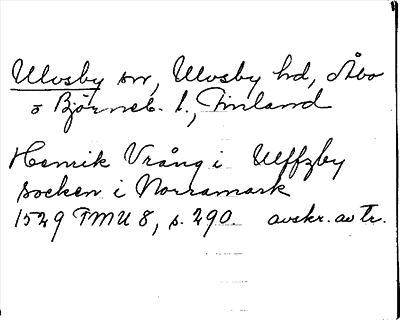 Ulvsby sn, Ulvsby hd, Åbo
o Björneb. l., Finland
Henrik Vrång i Ulffzby
socken i Norramark
1529 FMU 8, s. 290. avskr. av tr.